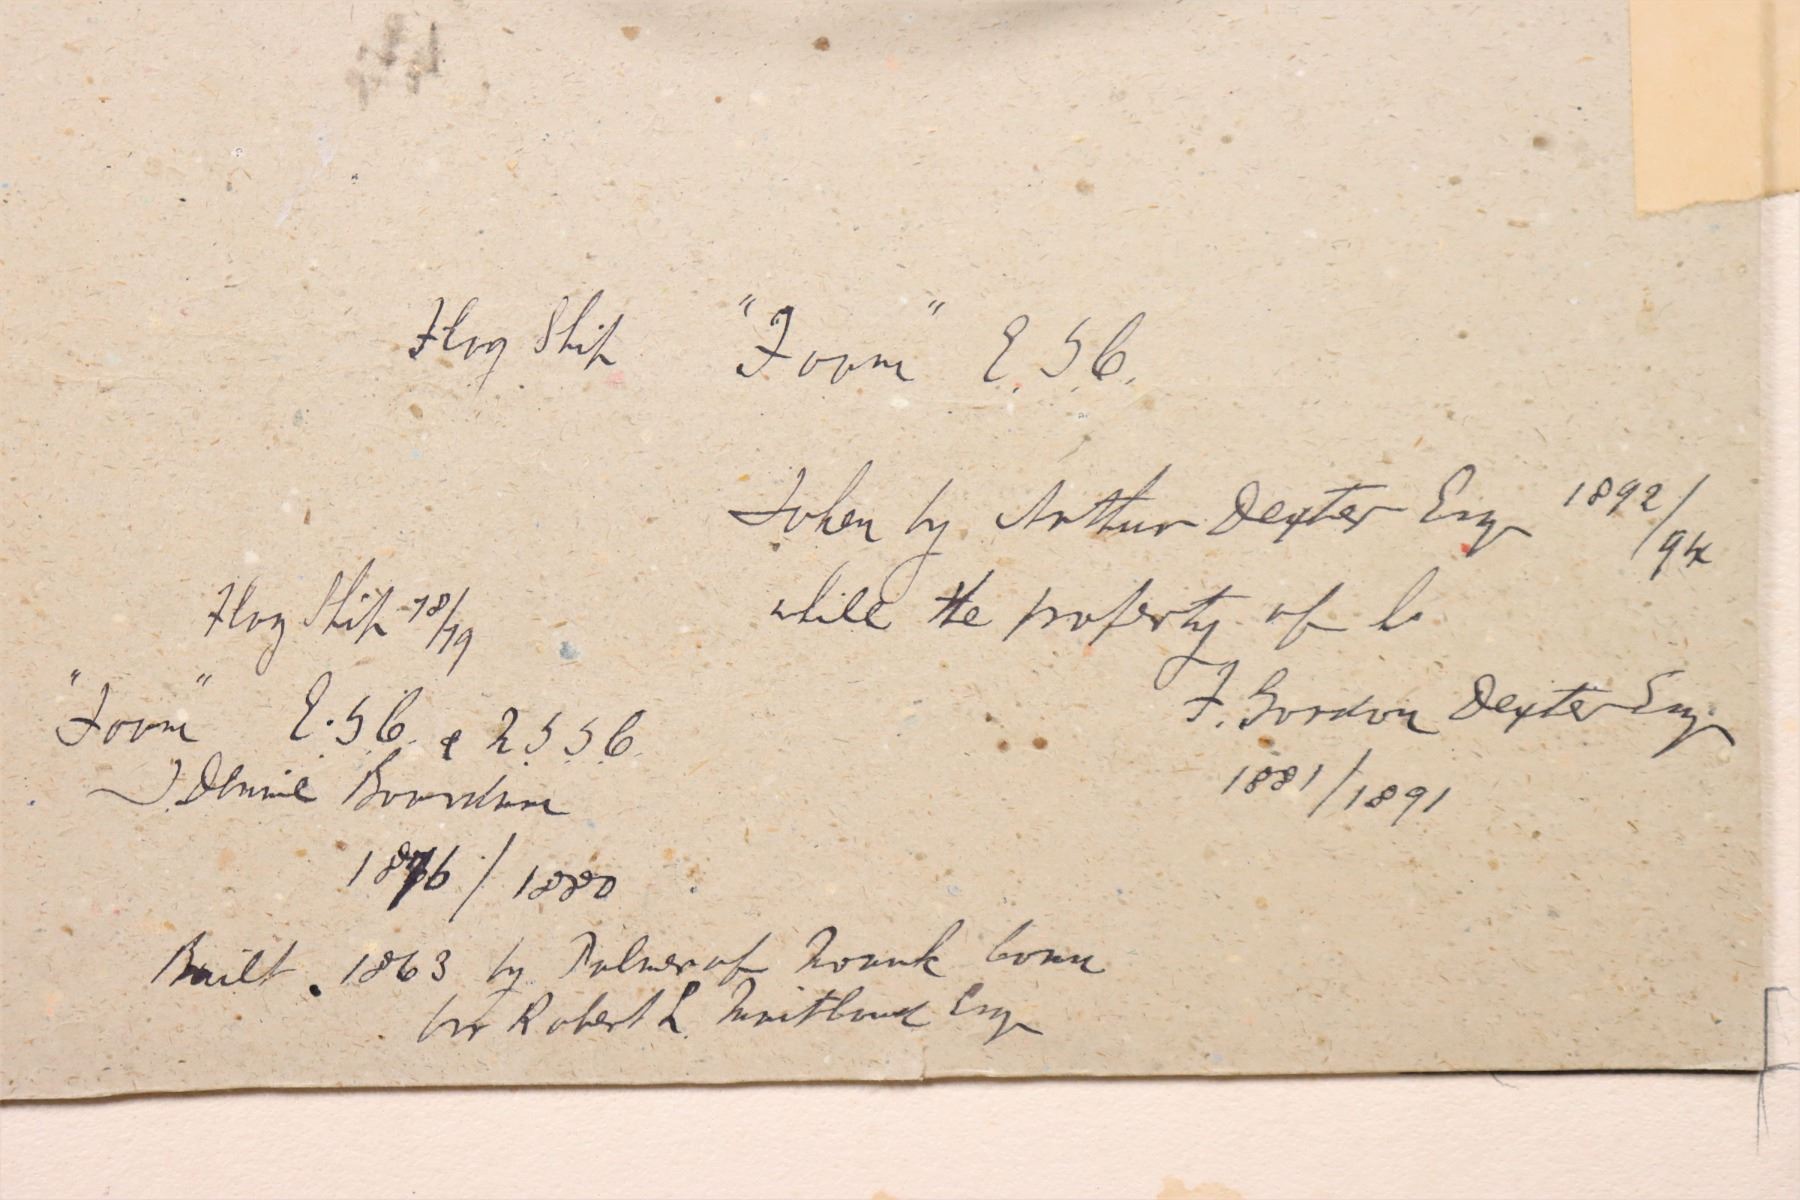 Flag Ship "Foam" E. S B.
Taken by Arthur Dexter Esq 1892/94
while the property of
F. Gordon Dexter Esq
1881/1891
Flag Ship 78/79
"Foam" E. S B. & N S S B.
Boardman
1876/1880
Built. 1863 by Palmer of Noank Conn
for Robert L Maitland Esq